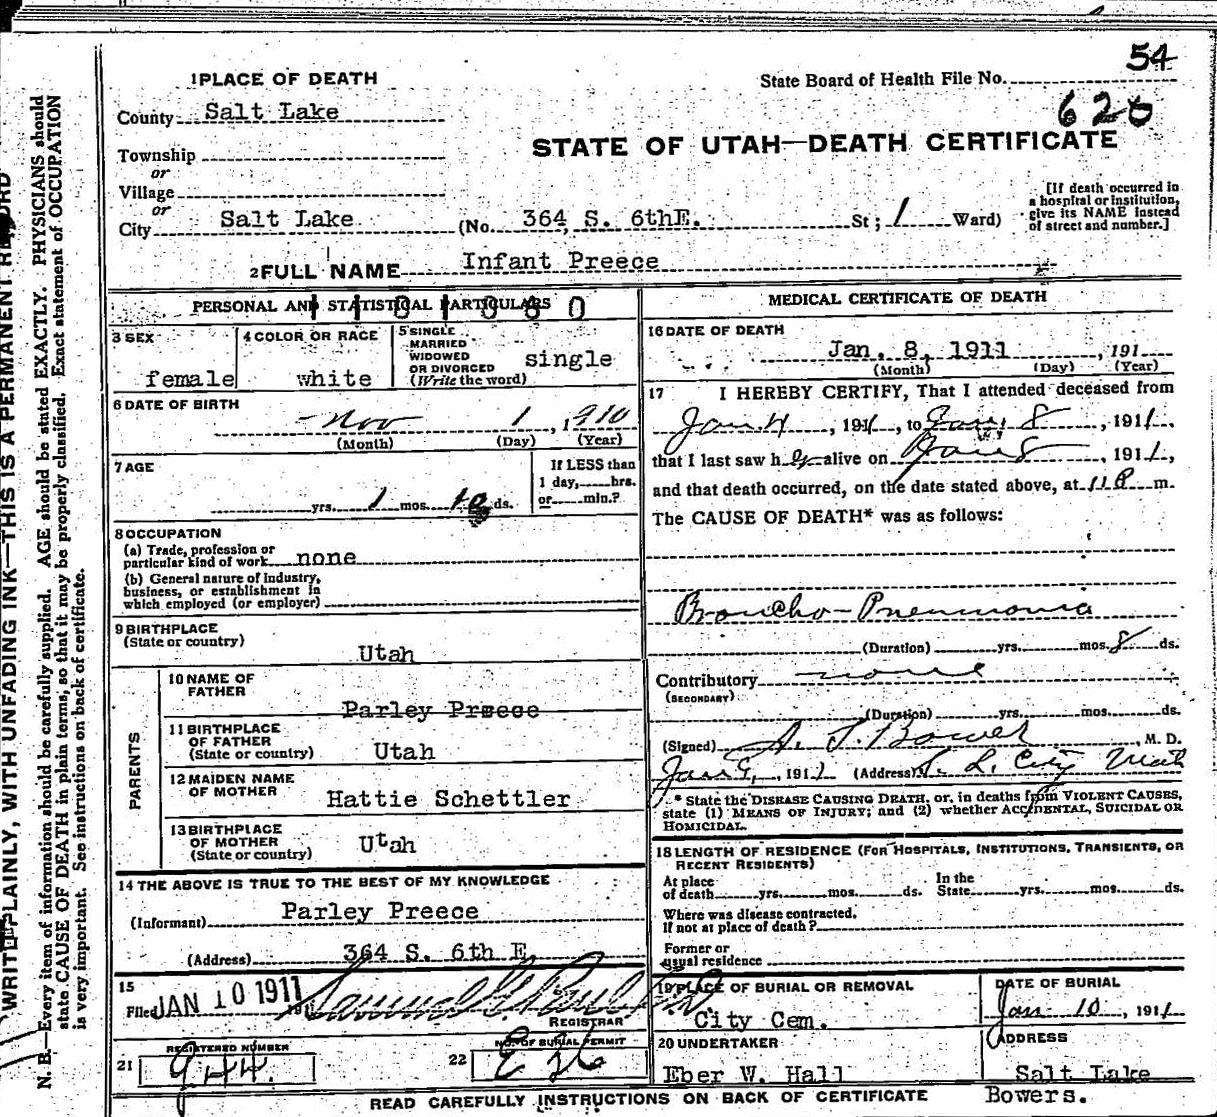 54
1 PLACE OF DEATH
State Board of Health File No.
County Salt Lake
620
STATE OF UTAH—DEATH CERTIFICATE
Township
or
Village
or
City Salt Lake (No. 364 S. 6thE. St; 1 Ward)
[If death occurred in
a hospital or institution,
give its NAME instead
of street and number.]
2 FULL NAME Infant Preece
PERSONAL AND STATISTICAL PARTICULARS
3 SEX
female
4 COLOR OR RACE
white
5 SINGLE
MARRIED
WIDOWED
OR DIVORCED
(Write the word)
single
6 DATE OF BIRTH
Nov 1, 1910
(Month) (Day) (Year)
7 AGE
yrs. 1 mos. ds.
If LESS than
1 day, hrs.
or min.?
8 OCCUPATION
(a) Trade, profession or
particular kind of work none
(b) General nature of industry,
business, or establishment in
which employed (or employer)
9 BIRTHPLACE
(State or country)
Utah
PARENTS
10 NAME OF
FATHER
Parley Preece
11 BIRTHPLACE
OF FATHER
(State or country) Utah
12 MAIDEN NAME
OF MOTHER
Hattie Schettler
13 BIRTHPLACE
OF MOTHER
(State or country) Utah
14 THE ABOVE IS TRUE TO THE BEST OF MY KNOWLEDGE
(Informant) Parley Preece
(Address) 364 S. 6th E
15
Filed JAN 10 1911
REGISTRAR
REGISTERED NUMBER
21
22
NO. OF BURIAL PERMIT
MEDICAL CERTIFICATE OF DEATH
16 DATE OF DEATH
Jan. 8, 1911, 191
(Month) (Day) (Year)
17 I HEREBY CERTIFY, That I attended deceased from
Jan. 4, 1911, to Jan. 8, 1911,
that I last saw her alive on Jan 8, 1911,
and that death occurred, on the date stated above, at 11 P m.
The CAUSE OF DEATH* was as follows:
Broncho-Pneumonia
(Duration) yrs. mos. 8 ds.
Contributory none
(SECONDARY)
(Duration) yrs. mos. ds.
(Signed) A. J. Bower, M. D.
Jan 9, 1911 (Address) S. L. City Utah
* State the DISEASE CAUSING DEATH, or, in deaths from VIOLENT CAUSES,
state (1) MEANS OF INJURY; and (2) whether ACCIDENTAL, SUICIDAL OR
HOMICIDAL.
18 LENGTH OF RESIDENCE (FOR HOSPITALS, INSTITUTIONS, TRANSIENTS, OR
RECENT RESIDENTS)
At place
of death yrs. mos. ds.
In the
State yrs. mos. ds.
Where was disease contracted,
If not at place of death?
Former or
usual residence
19 PLACE OF BURIAL OR REMOVAL
City Cem.
DATE OF BURIAL
Jan 10, 1911
20 UNDERTAKER
Eber W. Hall
ADDRESS
Salt Lake
Bowers.
READ CAREFULLY INSTRUCTIONS ON BACK OF CERTIFICATE
WRITE PLAINLY, WITH UNFADING INK—THIS IS A PERMANENT RECORD
N. B.—Every item of information should be carefully supplied. AGE should be stated EXACTLY. PHYSICIANS should
state CAUSE OF DEATH in plain terms, so that it may be properly classified. Exact statement of OCCUPATION
is very important. See instructions on back of certificate.